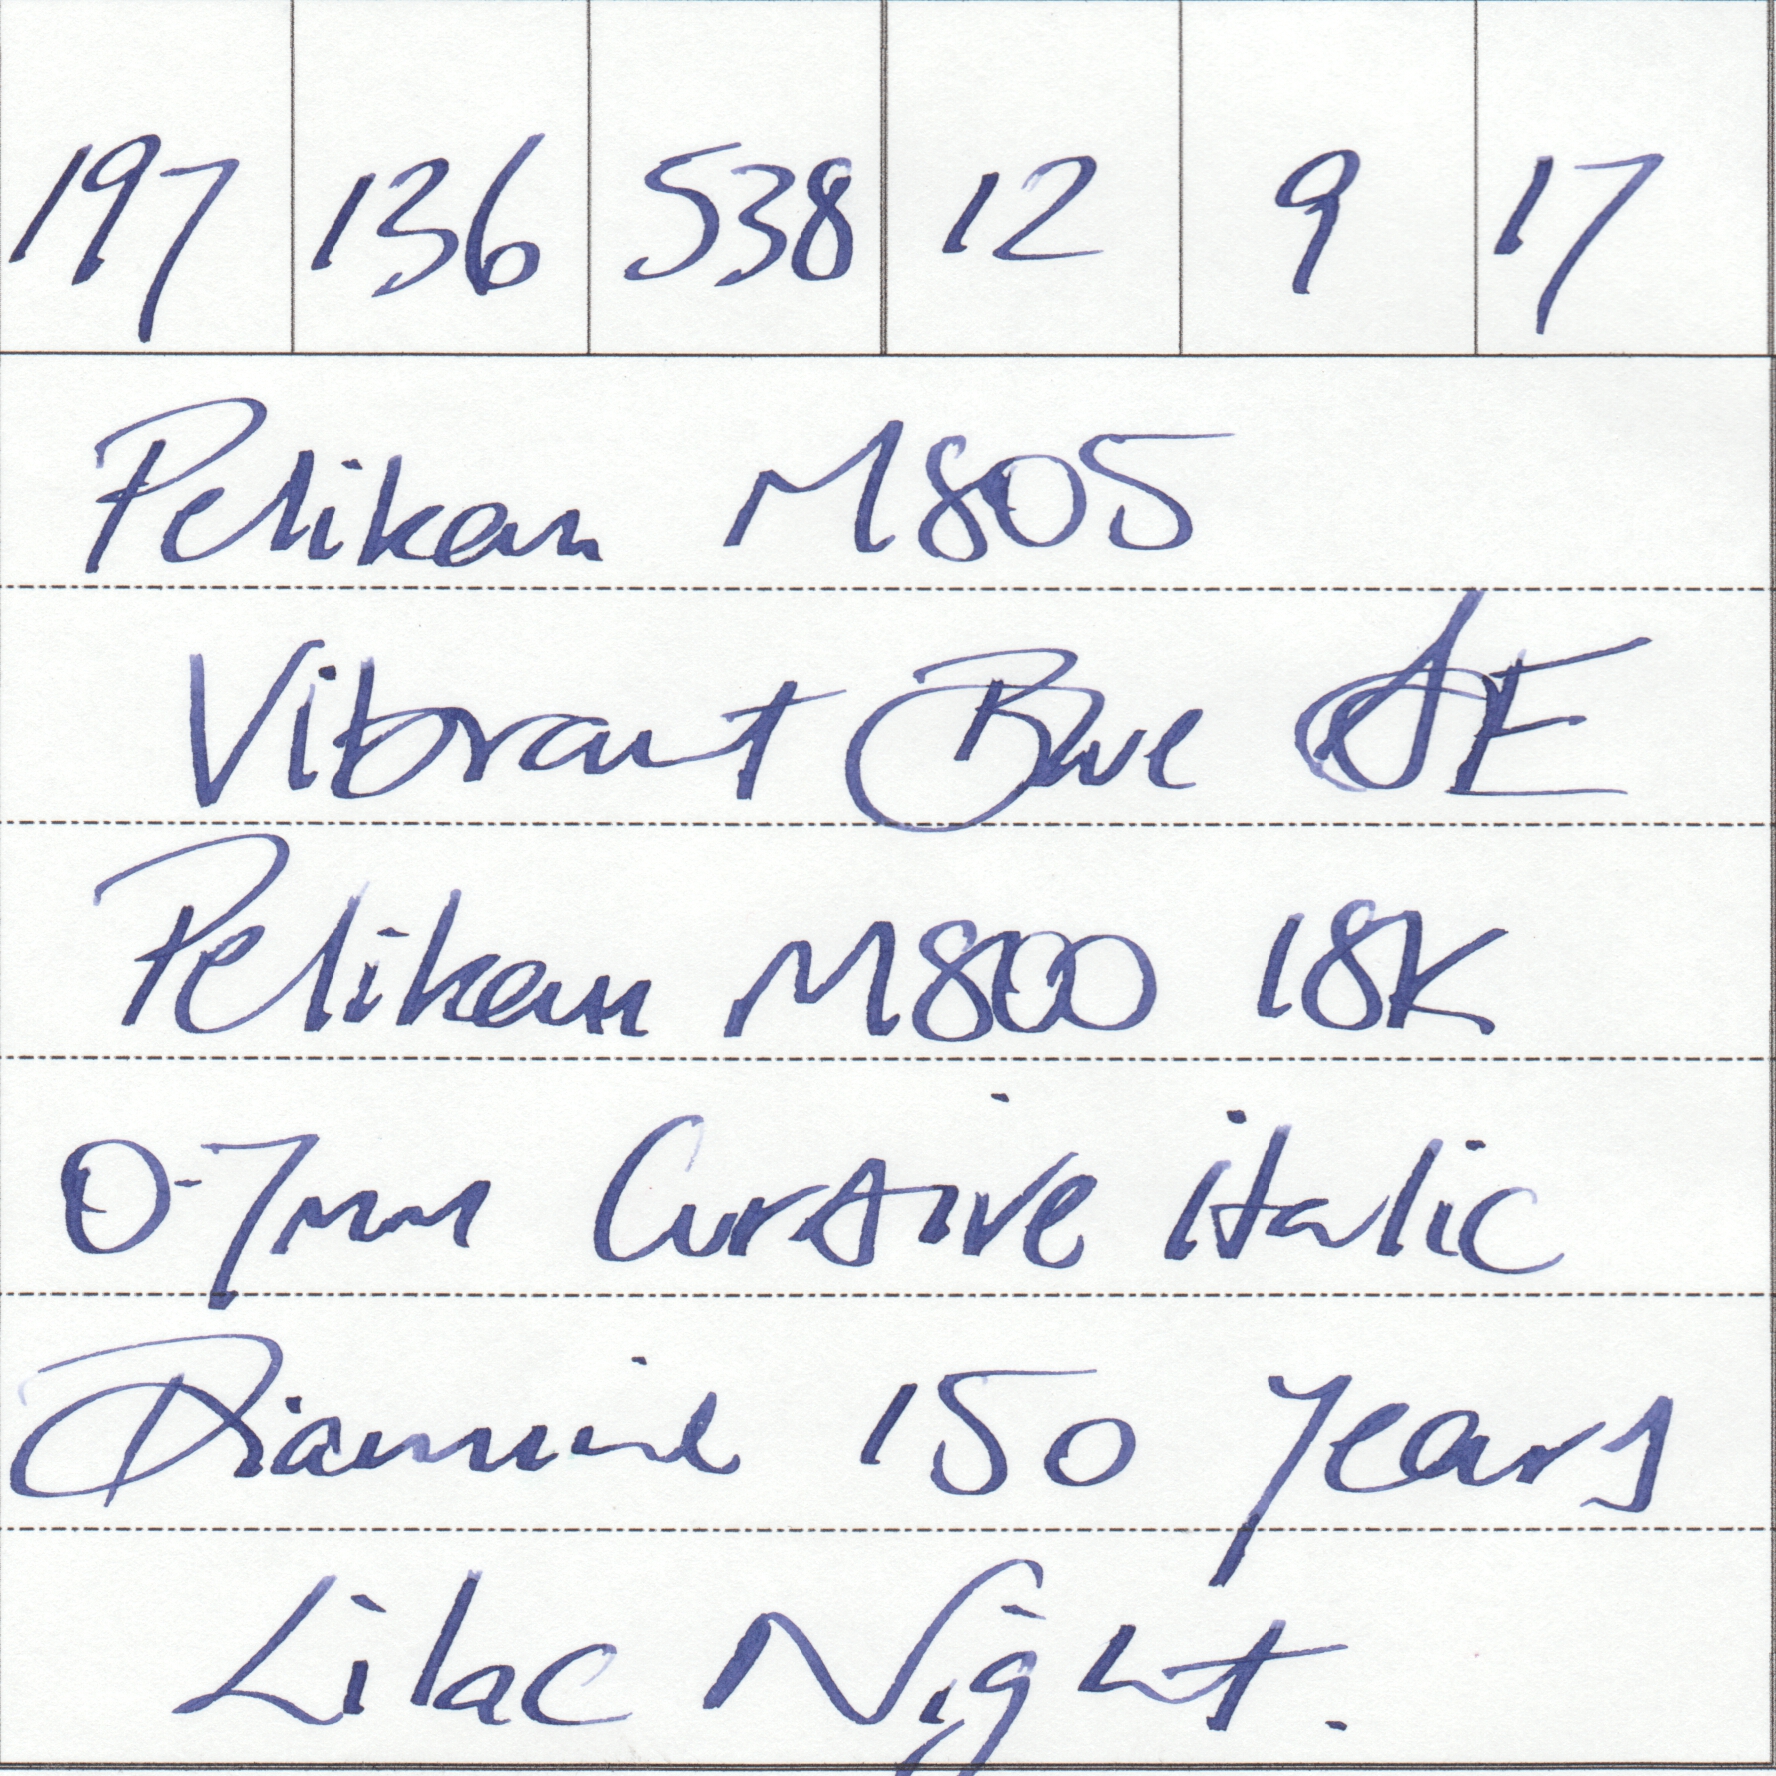 197 136 538 12 9 17
Pelikan M805
Vibrant Blue SE
Pelikan M800 18K
0.7mm Cursive italic
Diamine 150 Years
Lilac Night.